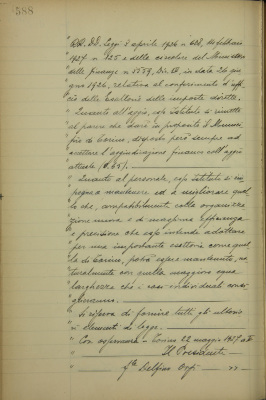 588
" RR. DD. Leggi 3 aprile 1926 n. 48, 10 febbraio
" 1927 n. 125 e della circolare del Ministero
" delle finanze n. 5559, Div. C, in data 26 giu
" gno 1926, relativa al conferimento d'uffi
" cio delle Esattorie delle imposte dirette.
" Quanto all'aggio, esso Istituto si rimette
" al parere che sarà in proposito il Munici
" pio di Torino, disposto però sempre ad
" accettare l'aggiudicazione financo coll'aggio
" attuale
" Quanto al personale, esso Istituto si im
" pegna a mantenere ed a migliorare quel
" lo che, compatibilmente colla organizza
" zione nuova e di maggiore efficienza
" e precisione che esso intende adottare
" per una importante esattoria come quel
" la di Torino, potrà essere mantenuto, na
" turalmente con quella maggiore equa
" larghezza che i casi individuali consi
" glieranno.
" Si riserva di fornire tutti gli ulterio
" ri documenti di legge.
" Con osservanza - Torino 22 maggio 1927
" Il Presidente
" f.to Delfino Orsi